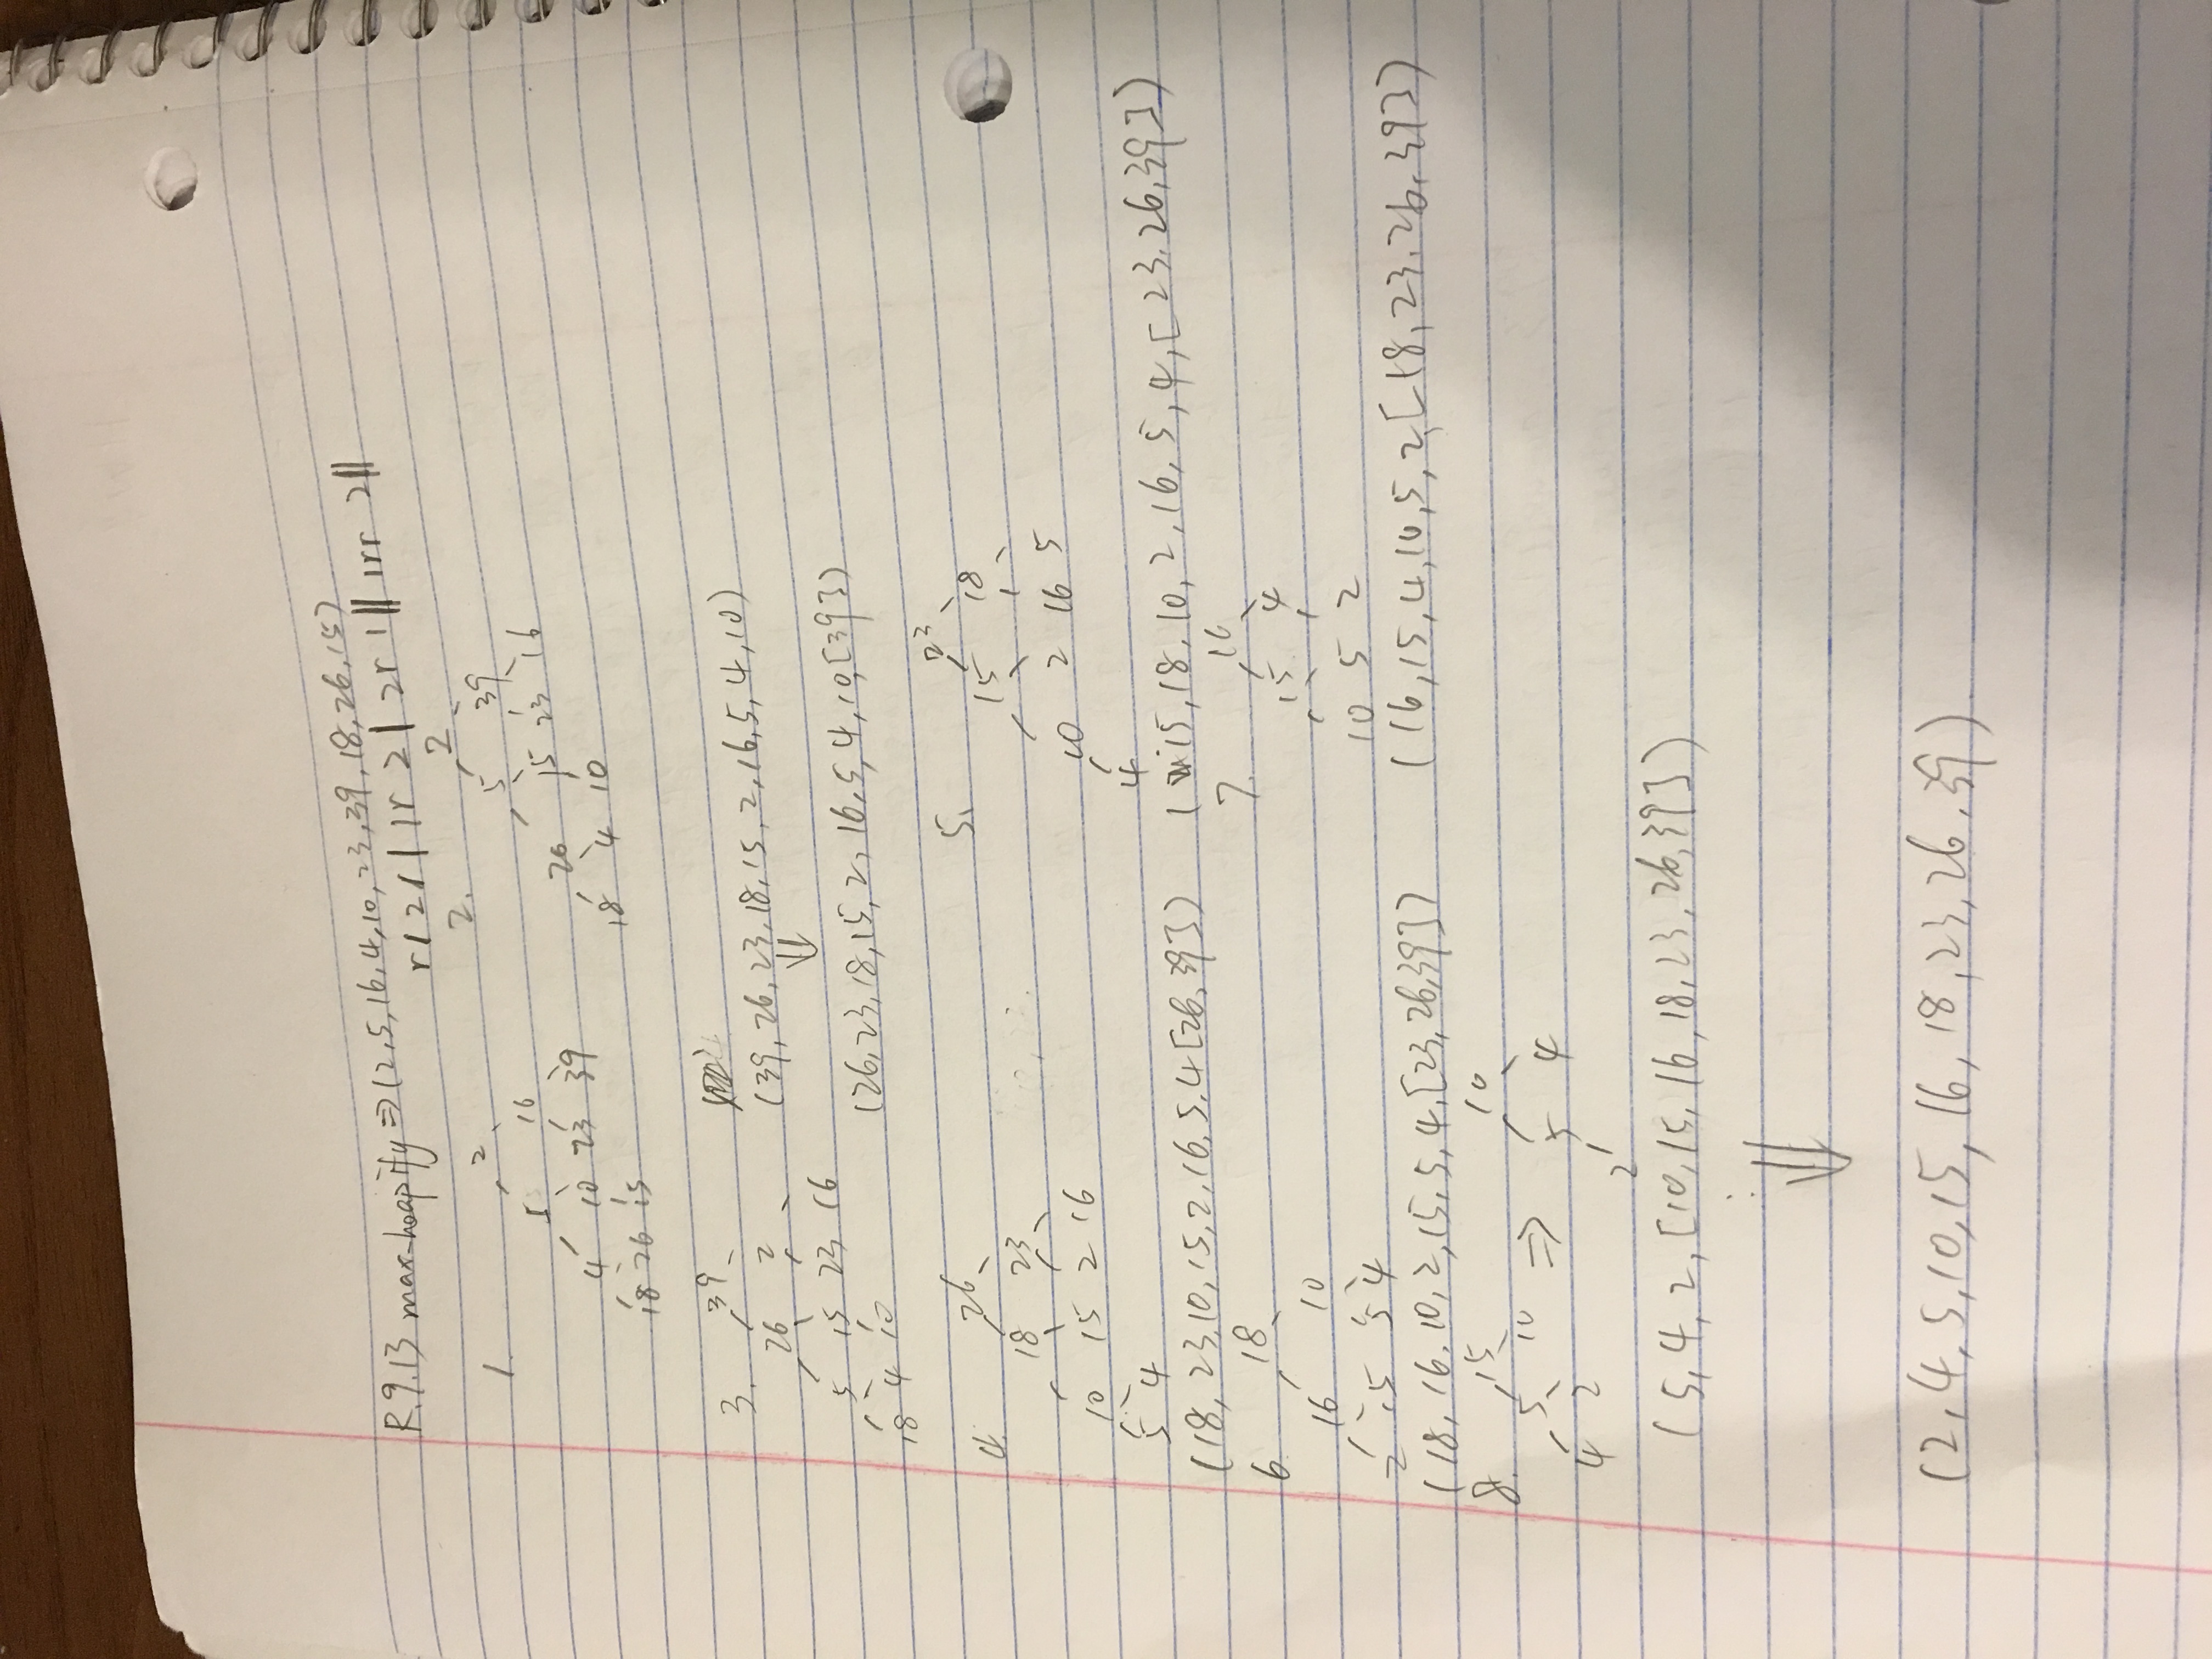 R.9.13 max-heapify ⇒ (2,5,16,4,10,23,39,18,26,15)
r/2/| |r 2| 2r 1|| 1rr 2||
1. 2
5 16
4 10 23 39
18 26 15
2. 2
5 39
26 15 23 16
18 4 10
3. 39
26 2
5 15 23 16
18 4 10
(39, 26, 23, 18, 15, 2, 16, 5, 4, 10)
⇓
(26, 23, 18, 15, 2, 16, 5, 4, 10, [39])
4. 26
18 23
10 15 2 16
5 4
(18, 23, 10, 15, 2, 16, 5, 4 [26, 39])
5. 23
15 18
10 2 16 5
4
(15, 18, 10, 2, 16, 5, 4, [23, 26, 39])
6. 18
16 10
2 15 5 4
(18, 16, 10, 2, 15, 5, 4, [23, 26, 39])
7. 16
15 4
10 5 2
(16, 15, 4, 10, 5, 2, [18, 23, 26, 39])
8. 15
5 10
4 2
⇒
10
5 4
2
(5, 4, 2, [10, 15, 16, 18, 23, 26, 39])
⇓
(2, 4, 5, 10, 15, 16, 18, 23, 26, 39)